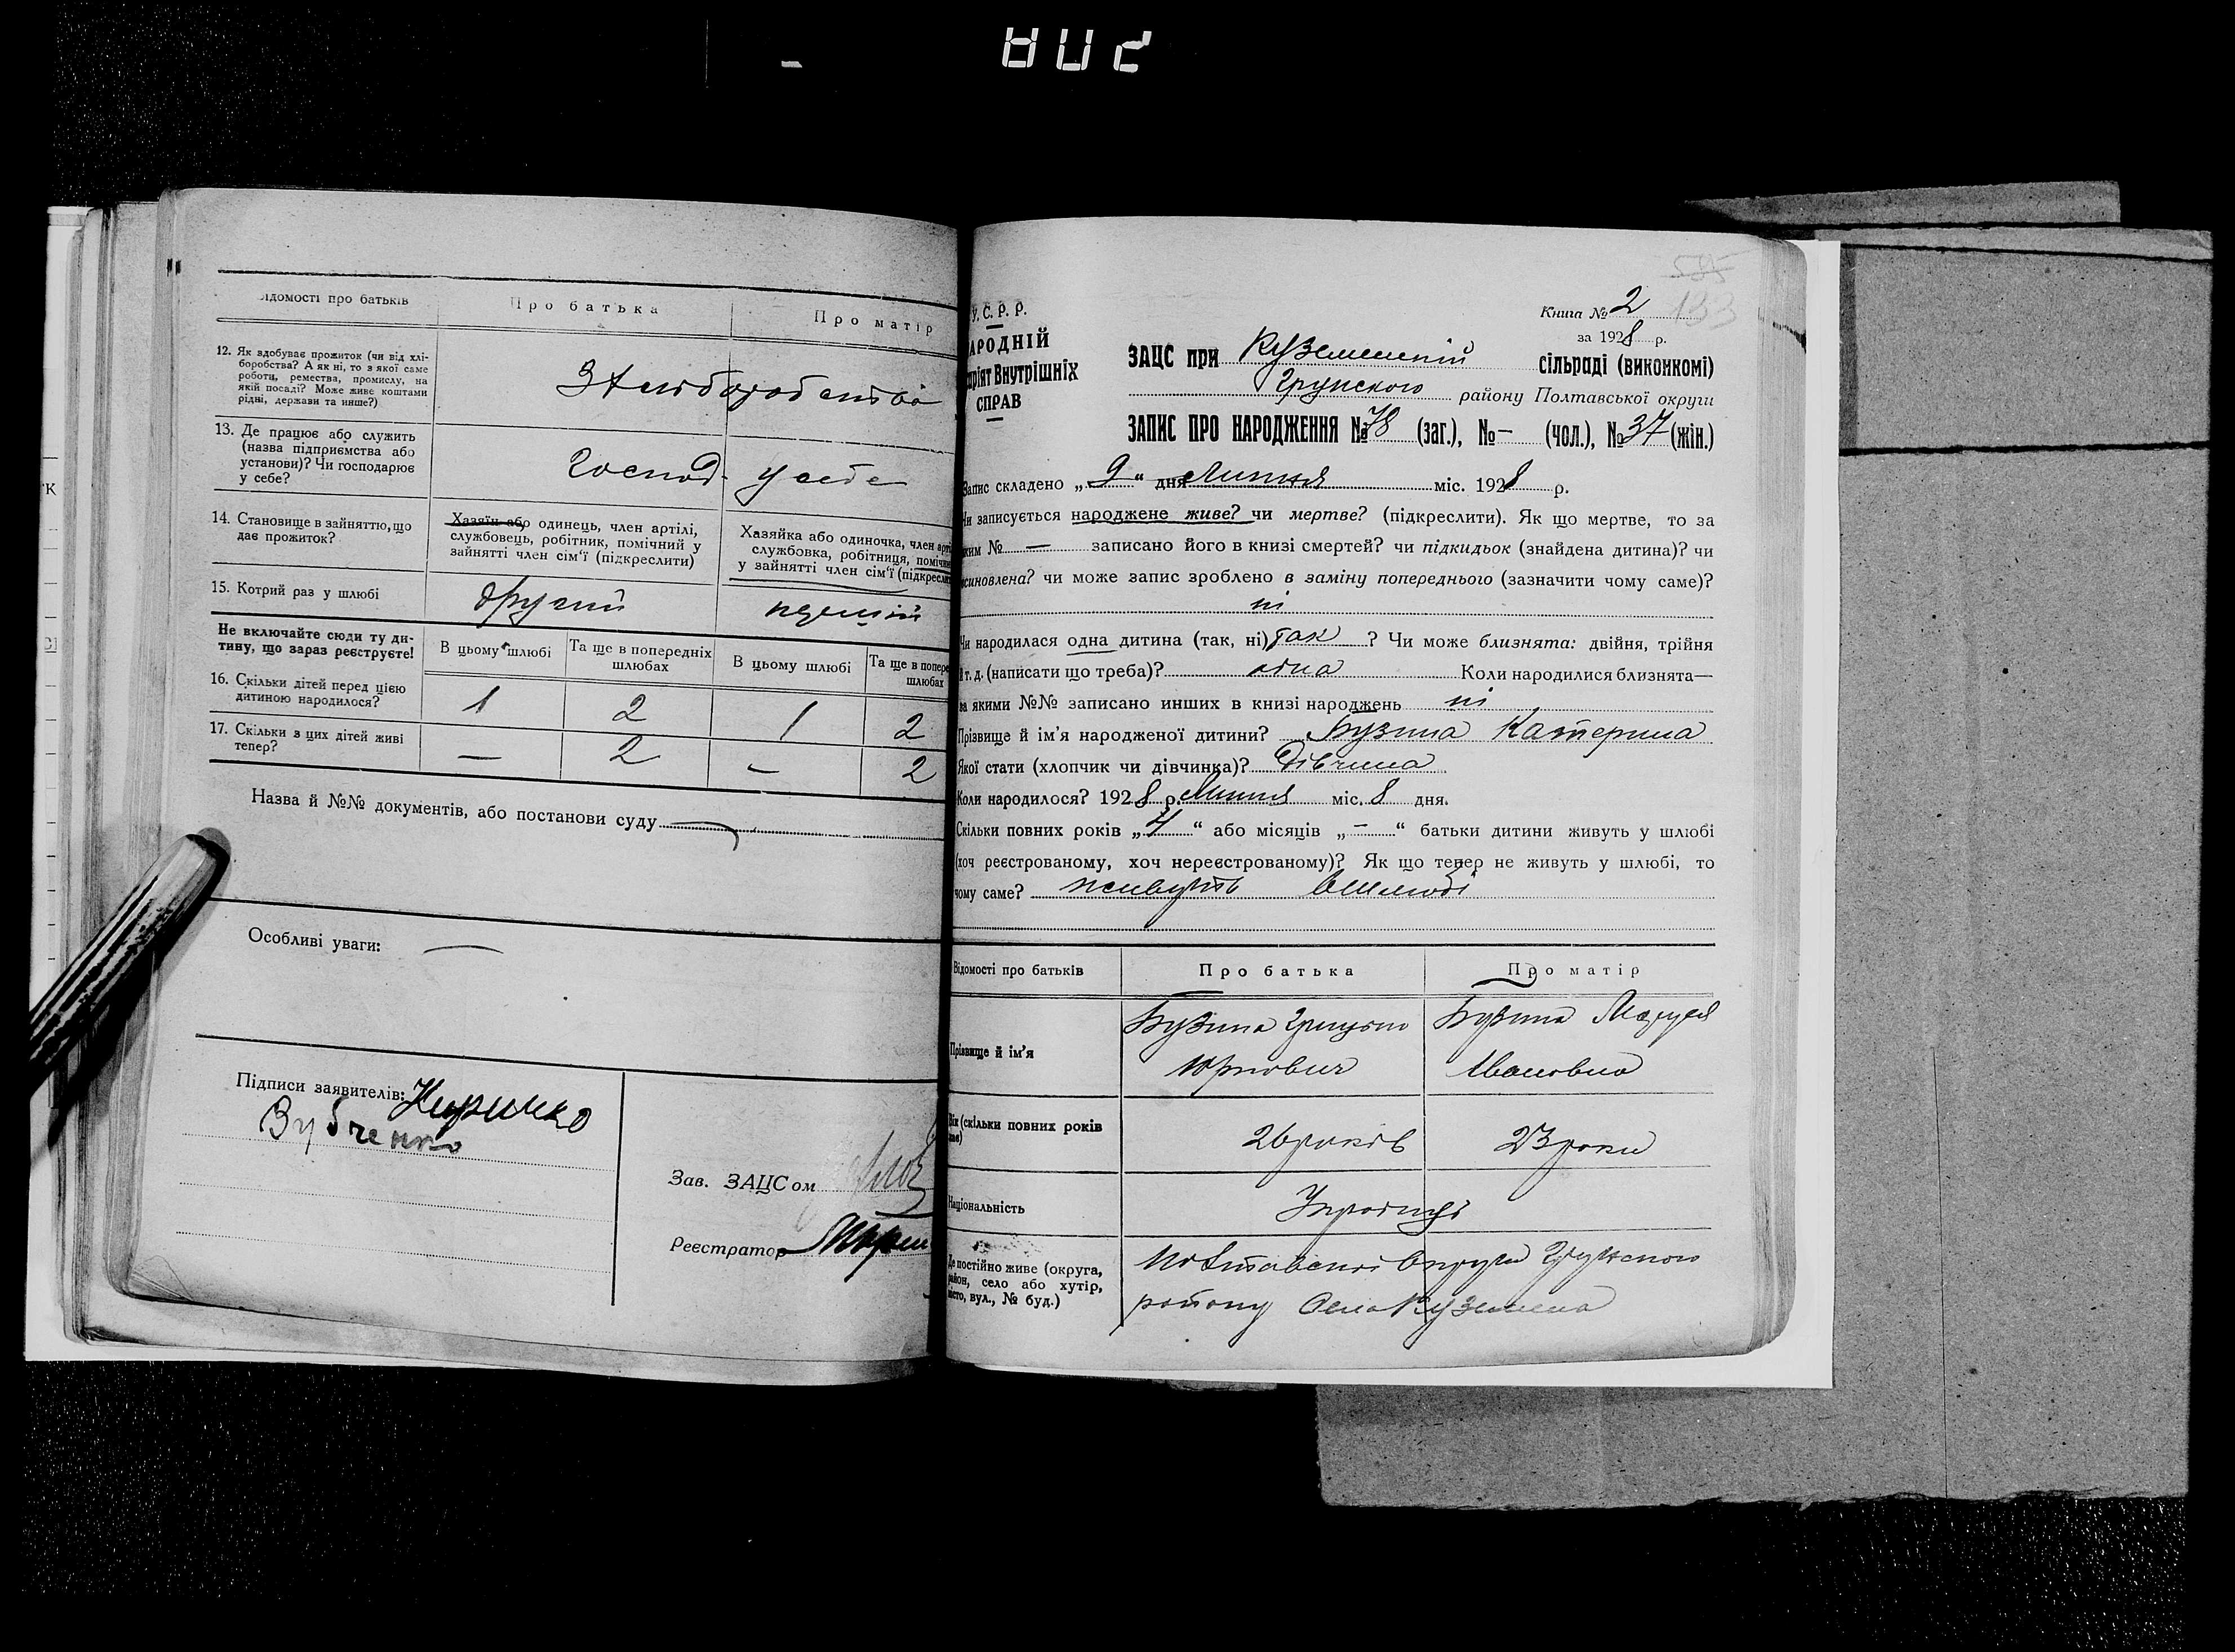 ідомості про батьків
Про батька
Про матір
12. Як здобуває прожиток (чи від хлі-
боробства? А як ні, то з якої саме
роботи, ремества, промислу, на
якій посаді? Може живе коштами
рідні, держави та инше?)
З хліборобства
13. Де працює або служить
(назва підприємства або
установи)? Чи господарює
у себе?
господ. у себе
14. Становище в зайняттю, що
дає прожиток?
Хазяїн або одинець, член артілі,
службовець, робітник, помічний у
зайнятті член сім'ї (підкреслити)
Хазяйка або одиночка, член арті
службовка, робітниця, помічн
у зайнятті член сім'ї (підкресли
15. Котрий раз у шлюбі
другий
перший
Не включайте сюди ту ди-
тину, що зараз реєструєте!
В цьому шлюбі
Та ще в попередніх
шлюбах
В цьому шлюбі
Та ще в попере
шлюбах
16. Скільки дітей перед цією
дитиною народилося?
1 2 1 2
17. Скільки з цих дітей живі
тепер?
— 2 — 2
Назва й №№ документів, або постанови суду —
Особливі уваги: —
Підписи заявителів: Кириченко
Зубченко
Зав. ЗАЦСом
Реєстратор
У. С. Р. Р.
АРОДНІЙ
ріят Внутрішніх
СПРАВ
585
133
Книга № 2
за 1928 р.
ЗАЦС при Куземенській сільраді (виконкомі)
Грунського району Полтавської округи
ЗАПИС ПРО НАРОДЖЕННЯ № 78 (заг.), № — (чол.), № 37 (жін.)
Запис складено „ 9 “ дня Липня міс. 1928 р.
Чи записується народжене живе? чи мертве? (підкреслити). Як що мертве, то за
яким № — записано його в книзі смертей? чи підкидьок (знайдена дитина)? чи
усиновлена? чи може запис зроблено в заміну попереднього (зазначити чому саме)?
ні
Чи народилася одна дитина (так, ні) так ? Чи може близнята: двійня, трійня
й т. д. (написати що треба)? одна Коли народилися близнята—
за якими №№ записано инших в книзі народжень ні
Прізвище й ім'я народженої дитини? Бузина Катерина
Якої стати (хлопчик чи дівчинка)? Дівчина
Коли народилося? 1928 р. Липня міс. 8 дня.
Скільки повних років „ 4 “ або місяців „ — “ батьки дитини живуть у шлюбі
(хоч реєстрованому, хоч нереєстрованому)? Як що тепер не живуть у шлюбі, то
чому саме? живуть вшлюбі
Відомості про батьків
Про батька
Про матір
Прізвище й ім'я
Бузина Грицько
Юркович
Бузина Маруся
Івановна
Вік (скільки повних років
має)
26 років
23 роки
Національність
Українці
Де постійно живе (округа,
район, село або хутір,
місто, вул., № буд.)
Полтавської Округи Грунского
району Село Куземена